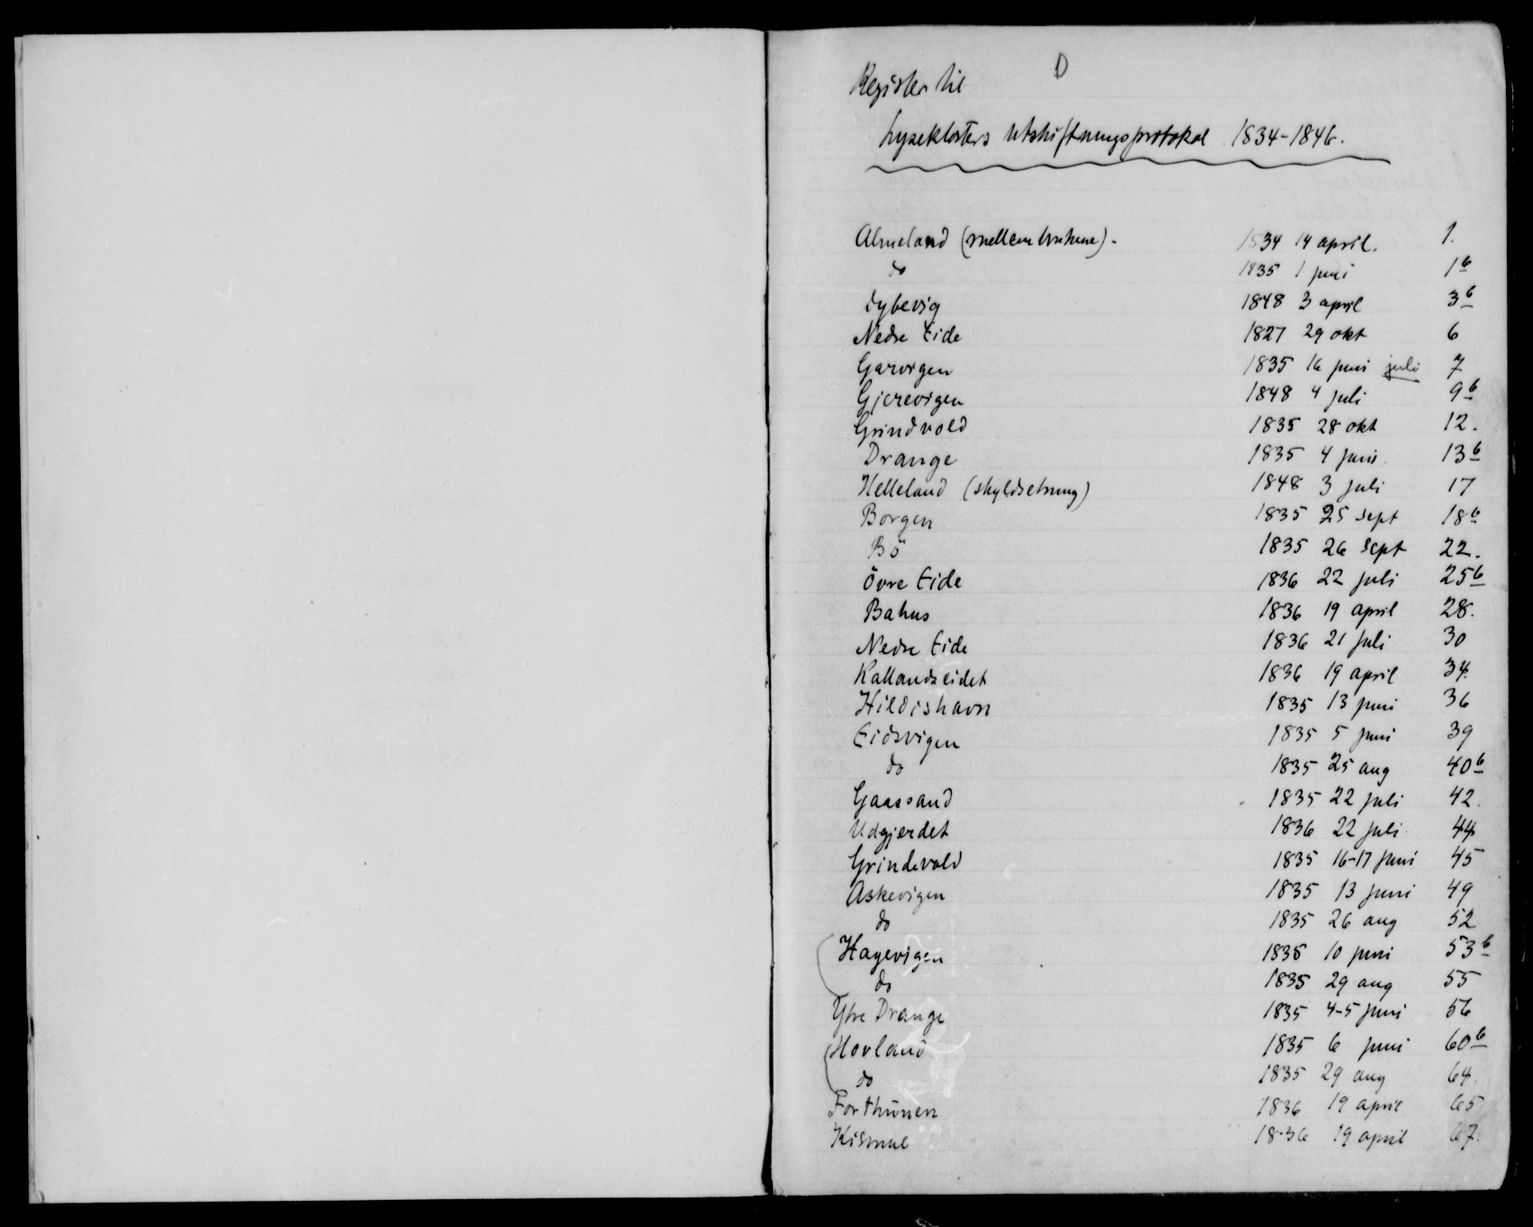 D
Register til
Lyseklosters Utskiftningsprotokol 1834-1846.
Almeland (mellem brukene). 1834 14 april. 1.
do 1835 1 juni 1b
Dybevig 1848 3 april 3b
Nedre Eide 1827 29 okt 6
Garvigen 1835 16 juni juli 7
Gjerevigen 1848 4 juli 9b
Grindvold 1835 28 okt 12.
Drange 1835 4 juni. 13b
Helleland (skyldsetning) 1848 3 juli 17
Borgen 1835 25 sept 18b
Bö 1835 26 sept 22.
övre Eide 1836 22 juli 25b
Bahus 1836 19 april 28.
Nedre Eide 1836 21 juli 30
Kallandseidet 1836 19 april 34.
Hildishavn 1835 13 juni 36
Eidsvigen 1835 5 juni 39
do 1835 25 aug 40b
Gaassand 1835 22 juli 42.
Udgjerdet 1836 22 juli 44
Grindevold 1835 16-17 juni 45
Askevigen 1835 13 juni 49
do 1835 26 aug 52
Hagevigen 1835 10 juni 53b
do 1835 29 aug 55
Ytre Drange 1835 4-5 juni 56
Hovland 1835 6 juni 60b
do 1835 29 aug 64.
Forthunen 1836 19 april 65
Kismul 1836 19 april 67.